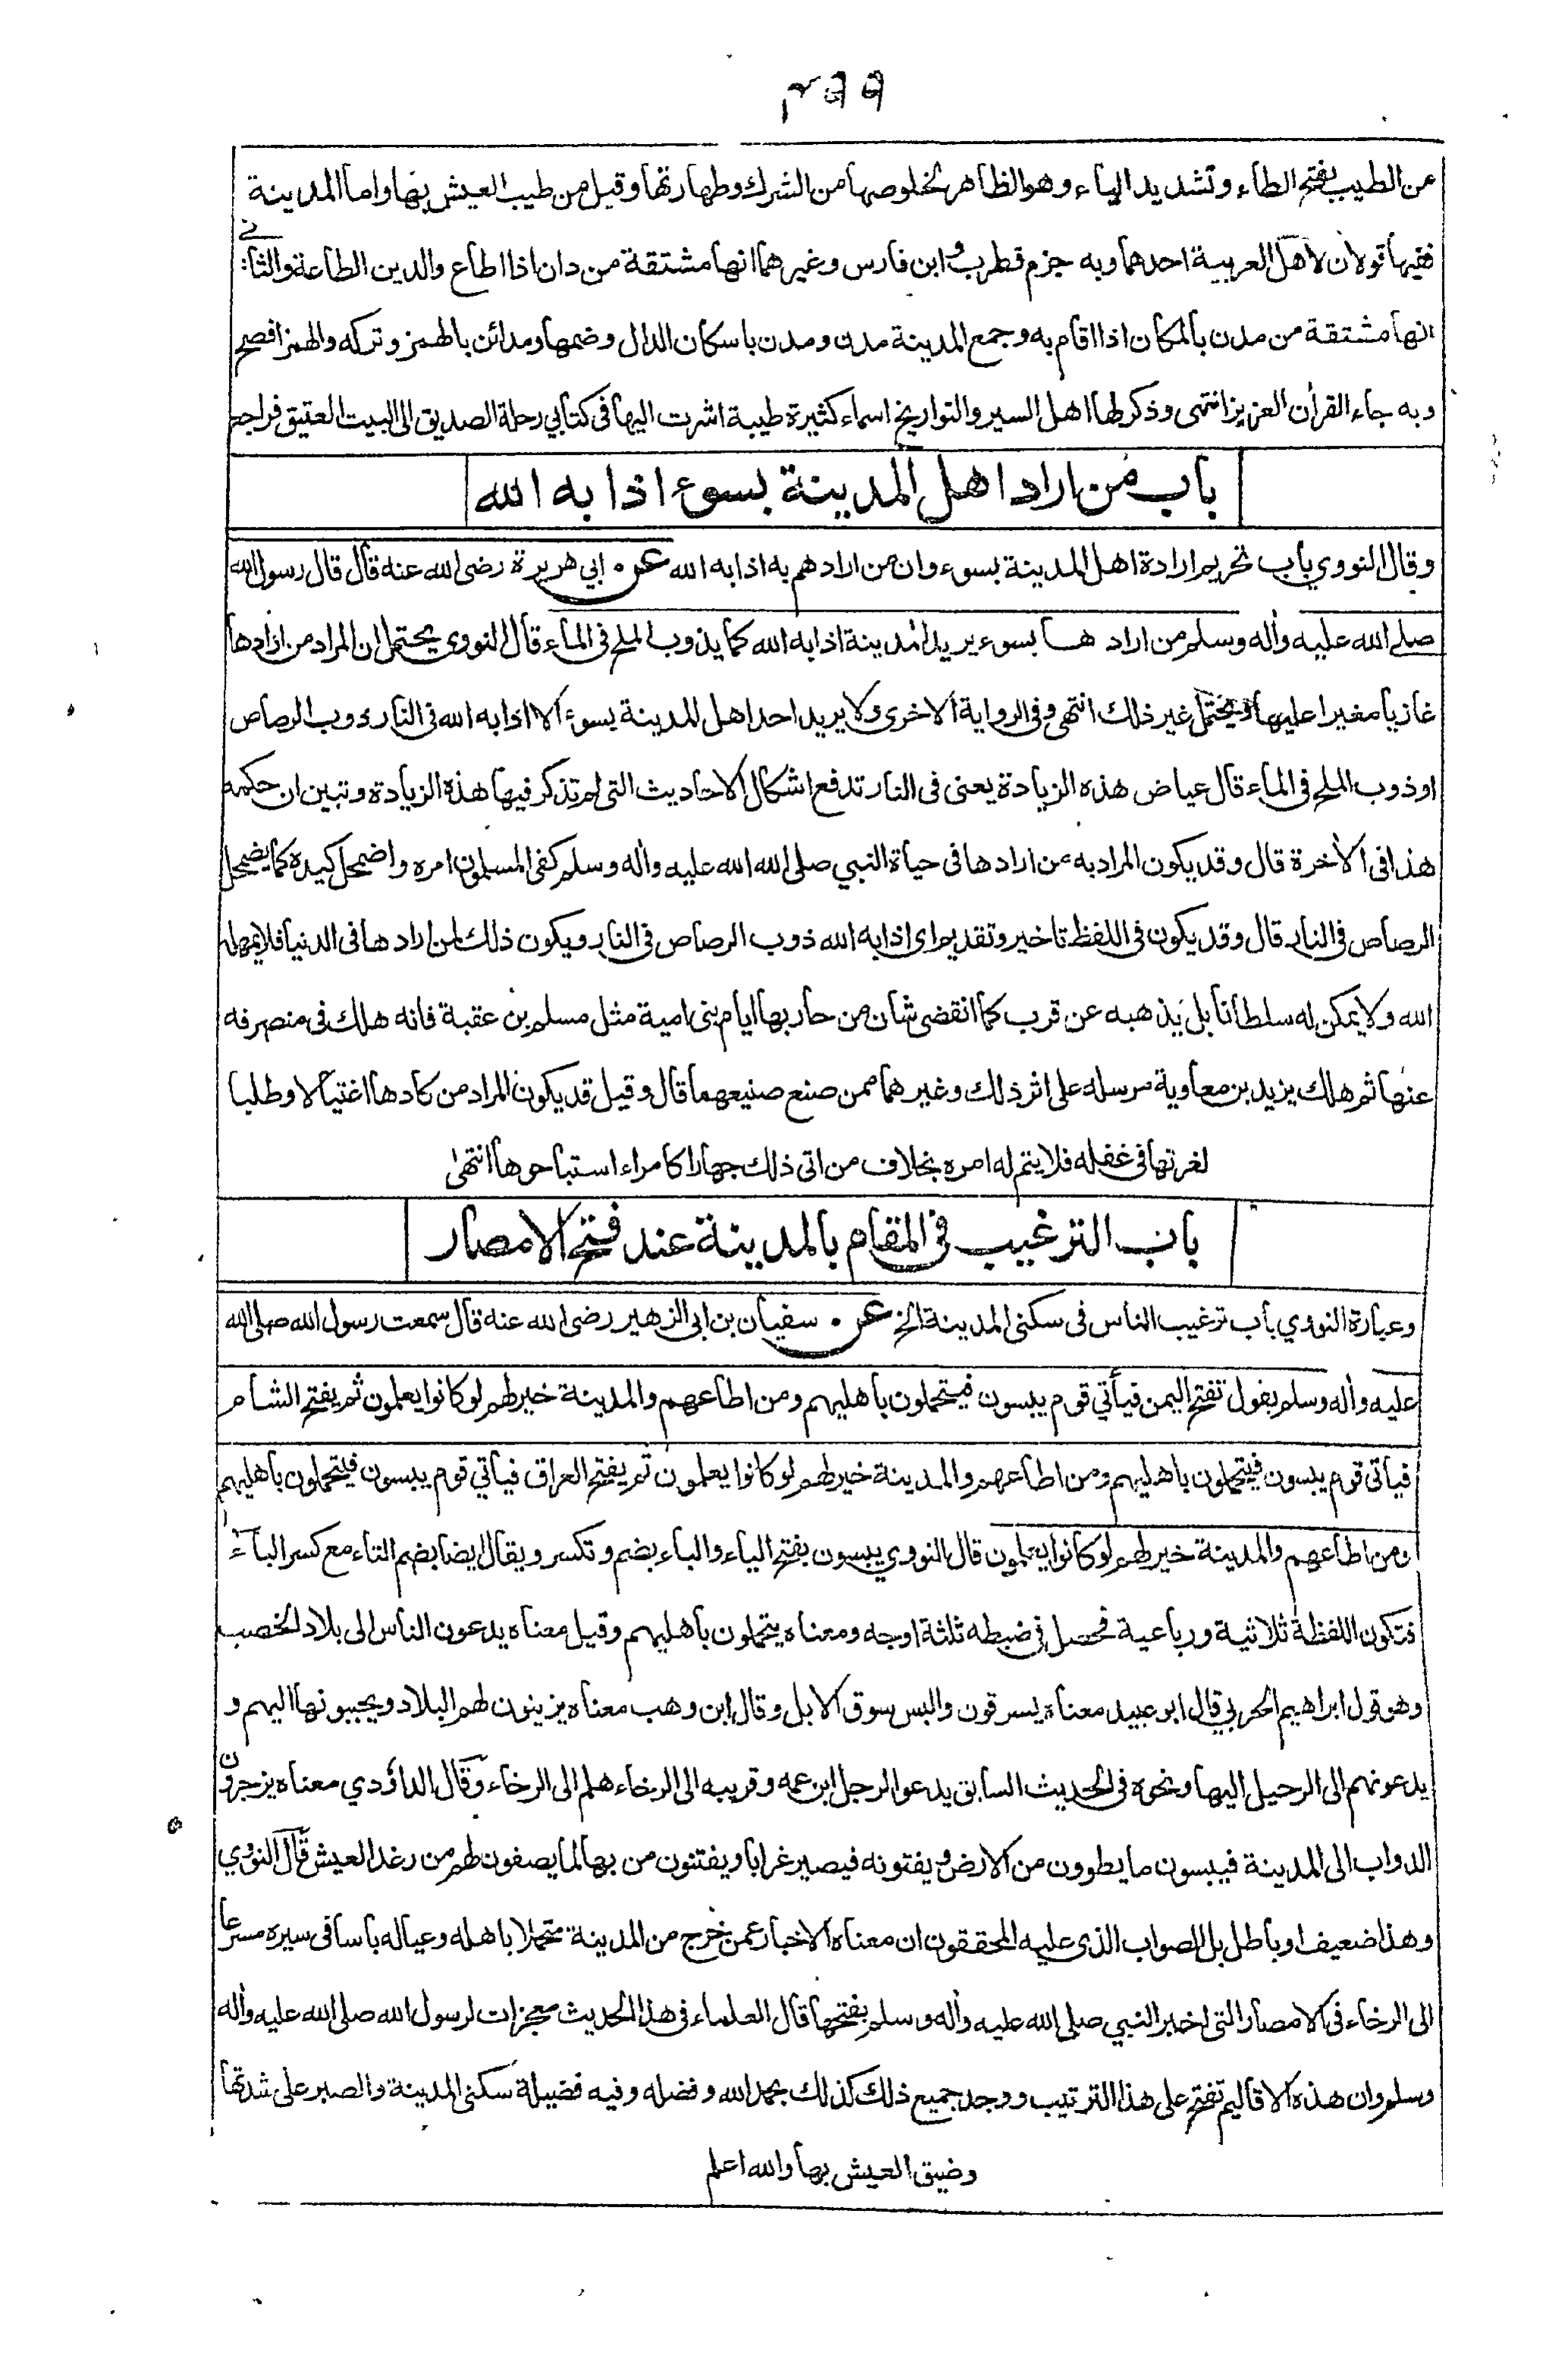 ٤٩٩
من الطيب بفتح الطاء وتشديد الياء وهو الظاهر لخلوصها من الشرك وطهارتها وقيل من طيب العيش بها واما المدينة
ففيها قولان لاهل العربية احدهما وبه جزم قطرب وابن فارس وغيرهما انها مشتقة من دان اذا اطاع والدين الطاعة والثاني
انها مشتقة من مدن بالمكان اذا اقام به وجمع المدينة مدن ومدن باسكان الدال وضمها ومدائن بالهمز وتركه والهمز افصح
وبه جاء القرأن العزيز انتهى وذكر لها اهل السير والتواريخ اسماء كثيرة طيبة اشرت اليها فى كتابي رحلة الصديق الى البيت العتيق فراجع
باب من اراد اهل المدينة بسوء اذابه الله
وقال النووي باب تحريم ارادة اهل المدينة بسوء وان من ارادهم به اذابه الله عن ابي هريرة رضى الله عنه قال قال رسول الله
صلى الله عليه وأله وسلم من اراد ها بسوء يريد المدينة اذابه الله كما يذوب الملح فى الماء قال النووي يحتمل ان المراد من ارادها
غازيا مغيرا عليها ويحتمل غير ذلك انتهى وفى الرواية الاخرى ولا يريد احد اهل المدينة بسوء الا اذابه الله فى النار ذوب الرصاص
او ذوب الملح فى الماء قال عياض هذه الزيادة يعنى فى النار تدفع اشكال الاحاديث التى لم تذكر فيها هذه الزيادة وتبين ان حكمه
هذا فى الأخرة قال وقد يكون المراد به من ارادها فى حياة النبي صلى الله الله عليه وأله وسلم كفى المسلمون امره واضمحل كيده كما يضمحل
الرصاص فى النار قال وقد يكون فى اللفظ تاخير وتقديم اى اذابه الله ذوب الرصاص فى النار ويكون ذلك لمن ارادها فى الدنيا فلا يمهله
الله ولا يمكن له سلطانا بل يذهبه عن قرب كما انقضى شان من حاربها ايام بنى امية مثل مسلم بن عقبة فانه هلك فى منصرفه
عنها ثم هلك يزيد بن معاوية مرسله على اثر ذلك وغيرهما ممن صنع صنيعهما قال وقيل قد يكون المراد من كادها اغتيالا وطلبا
لغرتها فى غفله فلا يتم له امره بخلاف من اتى ذلك جهارا كامراء استباحوها انتهى
باب الترغيب فى المقام بالمدينة عند فتح الامصار
وعبارة النووي باب ترغيب الناس فى سكنى المدينة الخ عن سفيان بن ابى الزهير رضى الله عنه قال سمعت رسول الله صلى الله
عليه وأله وسلم يقول تفتح اليمن فيأتي قوم يبسون فيتحملون بأهليهم ومن اطاعهم والمدينة خير لهم لو كانوا يعلمون ثم يفتح الشام
فياتى قوم يبسون فيتحملون باهليهم ومن اطاعهم والمدينة خير لهم لو كانوا يعلمون ثم يفتح العراق فياتي قوم يبسون فيتحملون باهليهم
ومن اطاعهم والمدينة خير لهم لو كانوا يعلمون قال النووي يبسون بفتح الياء والباء بضم وتكسر ويقال ايضا بضم التاء مع كسر الباء
فتكون اللفظة ثلاثية ورباعية فحصل فى ضبطه ثلثة اوجه ومعناه يتحملون باهليهم وقيل معناه يدعون الناس الى بلاد الخصب
وهو قول ابراهيم الحربي قال ابو عبيد معناه يسرقون والبس سوق الابل وقال ابن وهب معناه يزينون لهم البلاد ويحببونها اليهم و
يدعونهم الى الرحيل اليها ونحوه فى الحديث السابق يدعو الرجل ابن عمه وقريبه الى الرخاء هلم الى الرخاء وقال الداؤدي معناه يزجرون
الدواب الى المدينة فيبسون ما يطوون من الارض ويفتونه فيصير غرابا ويفتنون من بها لما يصفون لهم من رغد العيش قال النووي
وهذا ضعيف او باطل بل الصواب الذى عليه المحققون ان معناه الاخبار عمن خرج من المدينة متحملا باهله وعياله باسا فى سيره مسرعا
الى الرخاء فى الامصار التى اخبر النبي صلى الله عليه وأله وسلم بفتحها قال العلماء فى هذا الحديث معجزات لرسول الله صلى الله عليه وأله
وسلم وان هذه الاقاليم تفتح على هذا الترتيب ووجد جميع ذلك كذلك بحمد الله وفضله وفيه فضيلة سكنى المدينة والصبر على شدتها
وضيق العيش بها والله اعلم